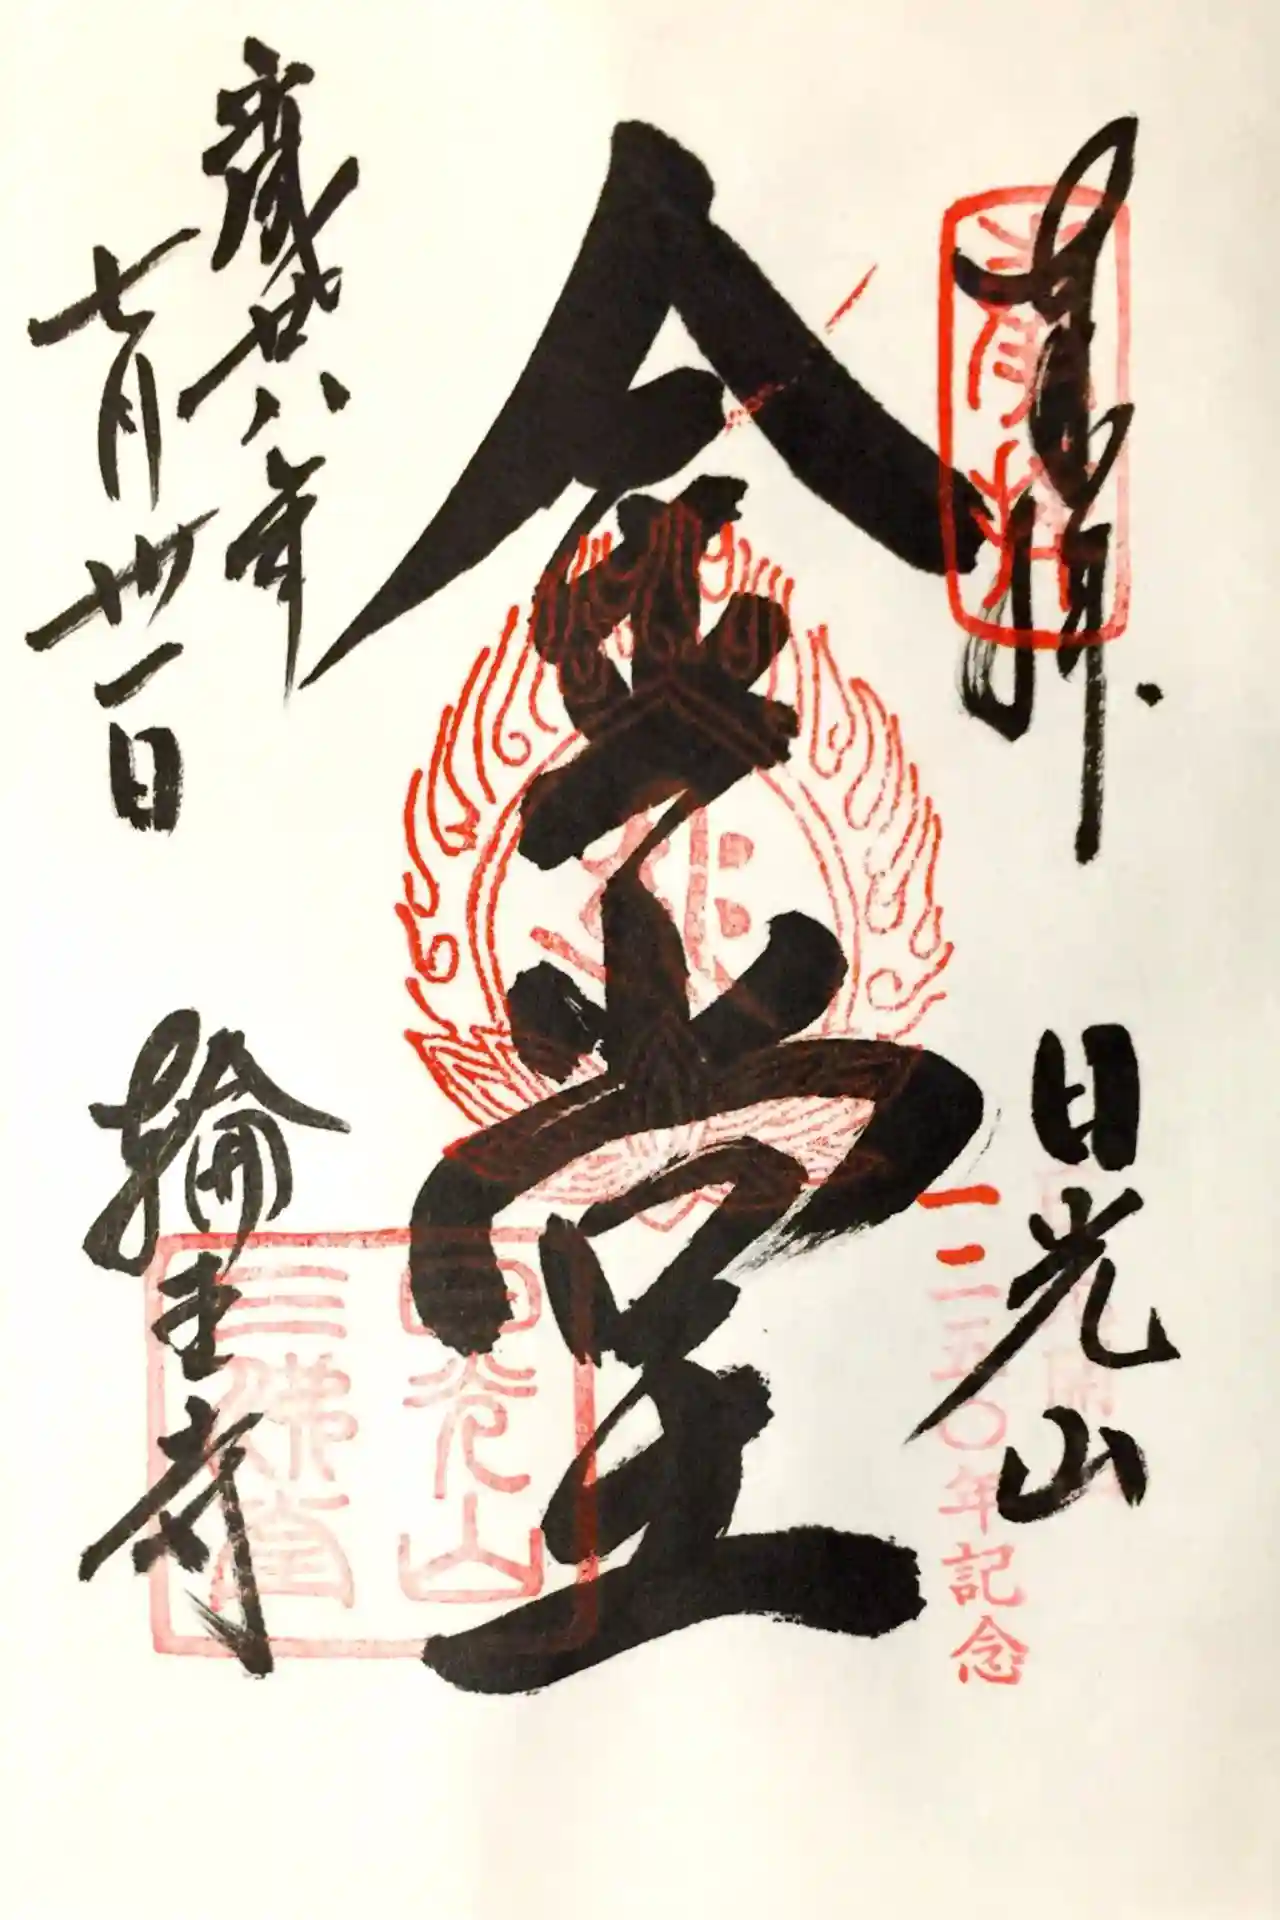 奉拝
日光山
一二五〇年記念
金堂
日光山
三佛堂
廿八年
七月卅一日
輪王寺